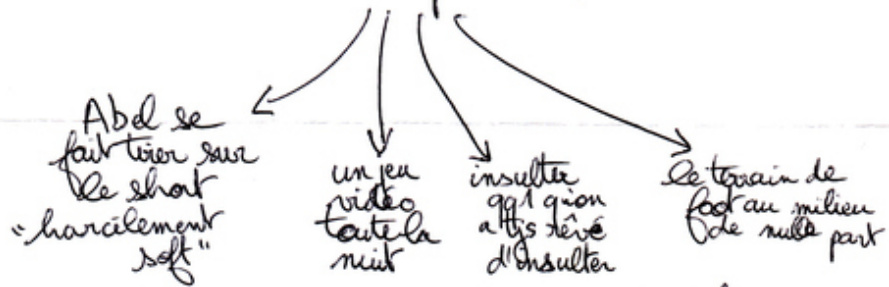 Abel se
fait tirer sur
le short
"harcèlement
soft"
un jeu
vidéo
toute la
nuit
insulter
qq1 qu'on
a tjs rêvé
d'insulter
le terrain de
foot au milieu
de nulle part